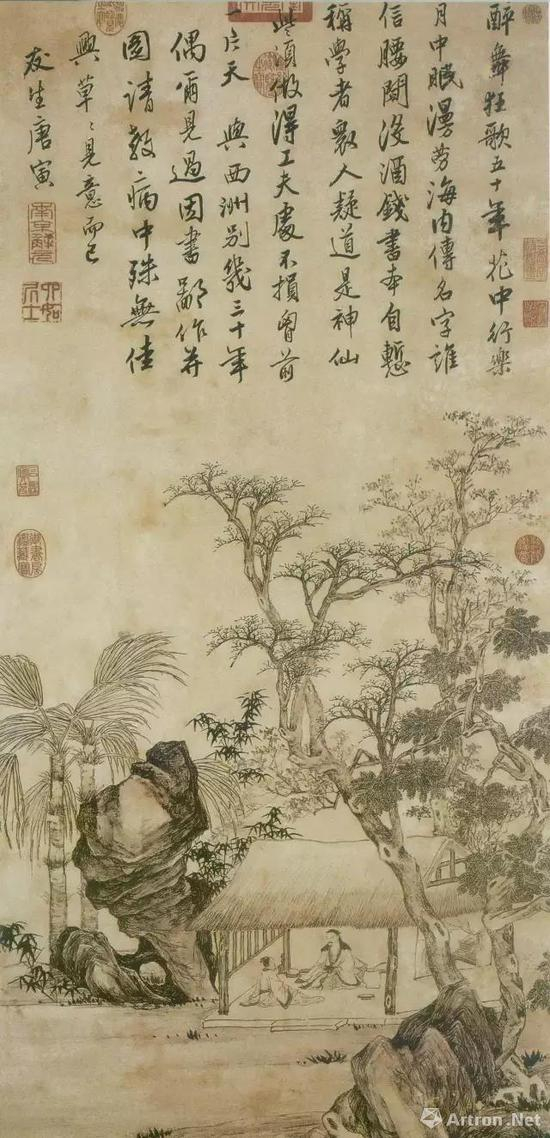 醉舞狂歌五十年花中行樂
月中眠漫勞海内傳名字誰
信腰間沒酒錢書本自慙
稱學者衆人疑道是神仙
些須做得工夫處不損胷前
一片天 與西洲別幾三十年
偶爾見過因書鄙作并
圖請教病中殊無佳
興草〻見意而已
友生唐寅
南京解元
六如居士
Artron.Net